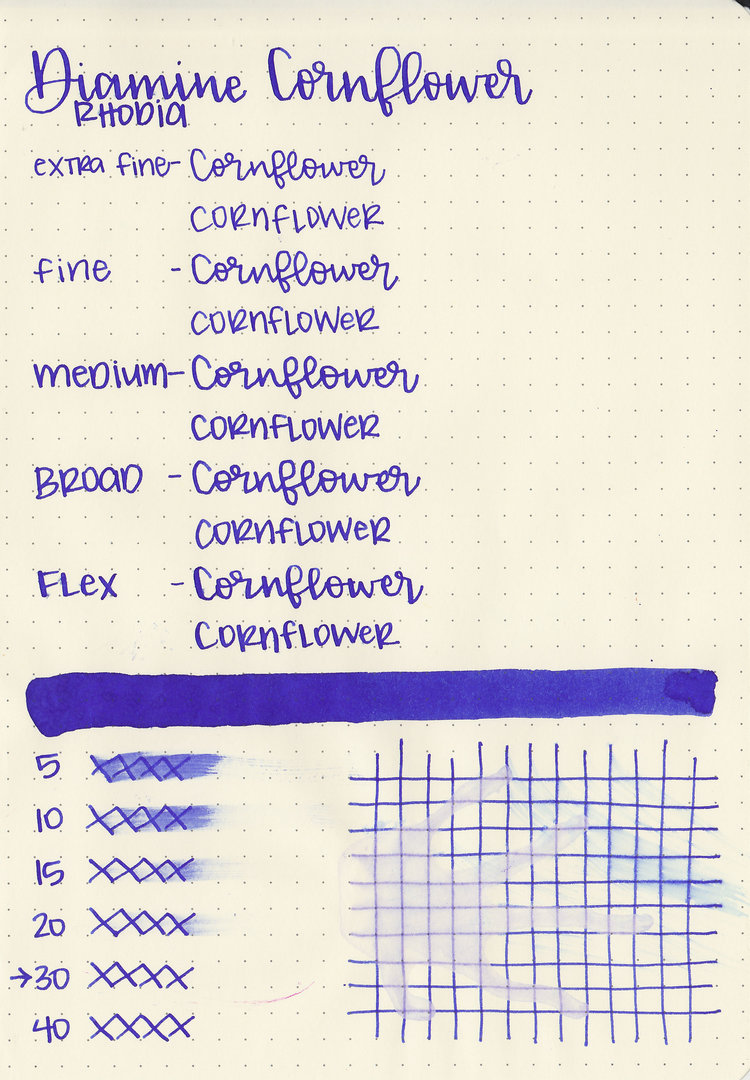 Diamine Cornflower
RHODIA
exTRa fine- Cornflower
CORnFLOWeR
fine - Cornflower
CORnFLOWeR
meDium- Cornflower
CORnFLOWeR
BROaD - Cornflower
CORnFLOWeR
FLex - Cornflower
CORnFLOWeR
5 XXXX
10 XXXX
15 XXXX
20 XXXX
→30 XXXX
40 XXXX